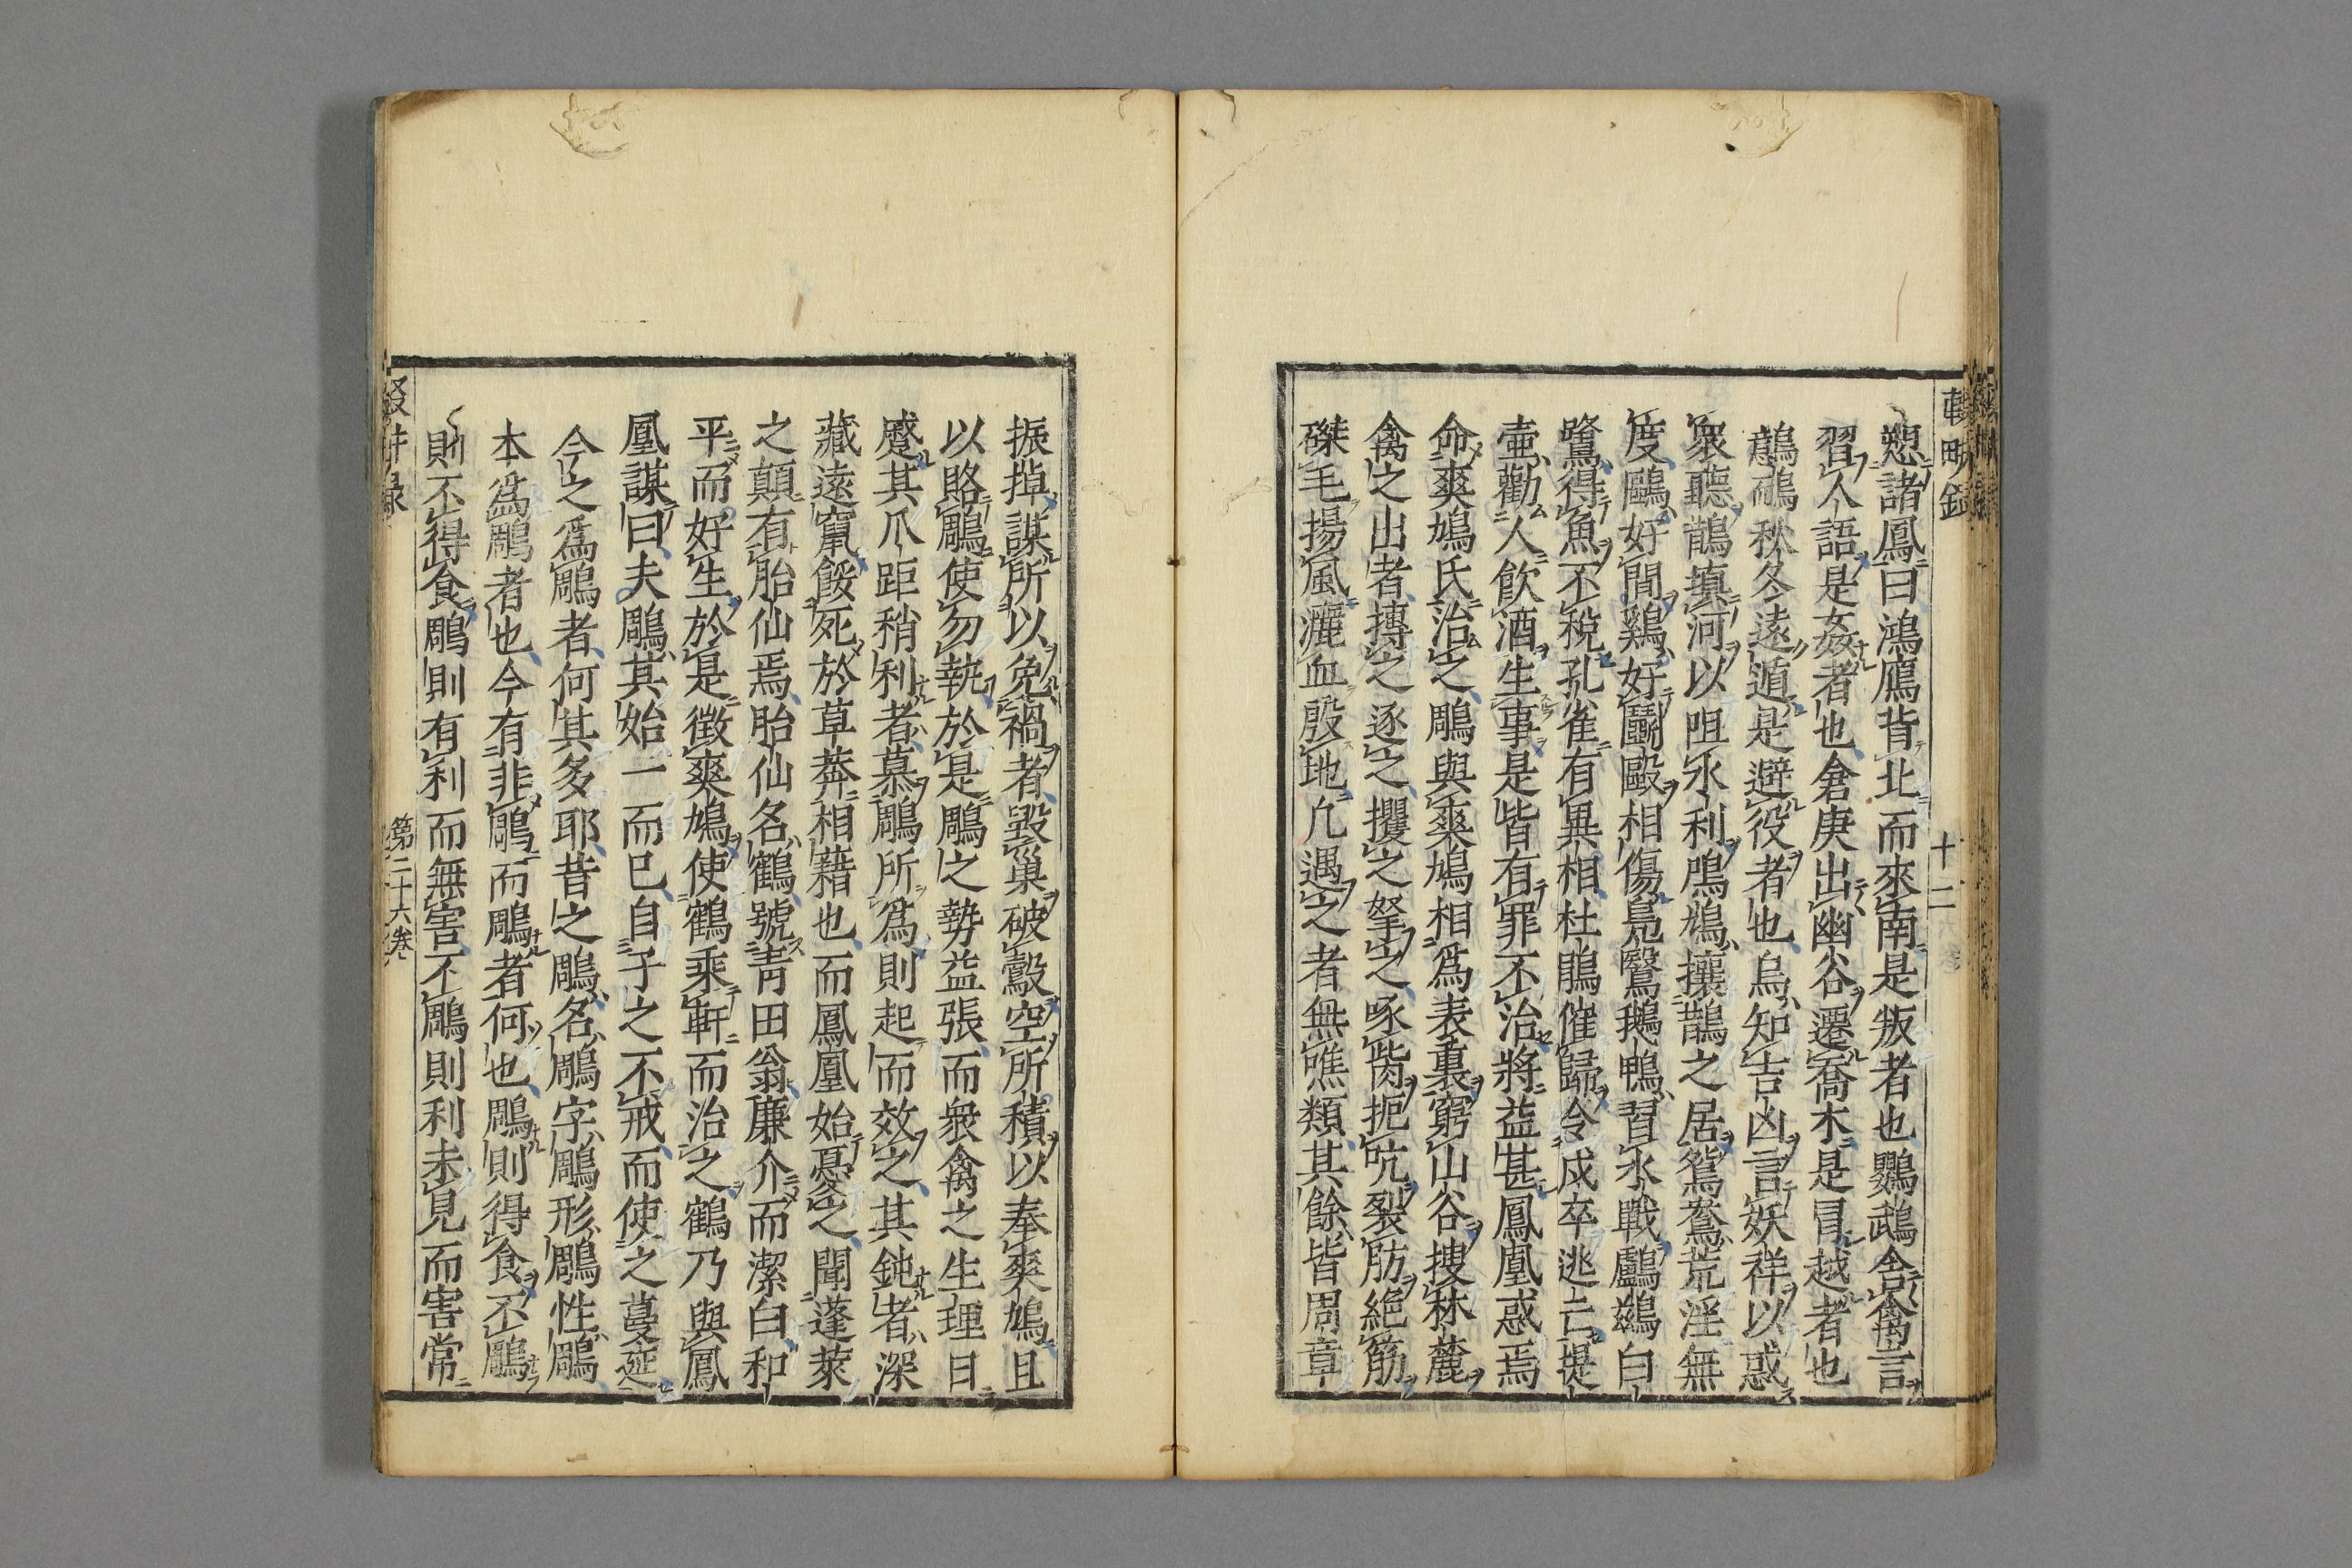 輟畊錄
十二
愬諸鳳曰鴻鴈背北而來南是叛者也鸚鵡舍禽言
習人語是姦者也倉庚出幽谷遷喬木是冒越者也
鷾鴯秋冬遠遁是避役者也烏知吉凶言妖祥以惑
衆聽鵲填河以咀水利鳲鳩攘鵲之居鴛鴦荒淫無
度鷗好閒鷄好鬭毆相傷鳧鷖鵝鴨習水戰鸕鷀白
鷺得魚不稅孔雀有異相杜鵑催歸令戍卒逃亡提
壷勸人飲酒生事是皆有罪不治將益甚鳳凰惑焉
命爽鳩氏治之鵰與爽鳩相爲表裏窮山谷搜林麓
禽之出者摶之逐之攫之拏之啄胔扼吭裂肪絕筋
磔毛揚風灑血殷地凢遇之者無噍類其餘皆周章
振掉謀所以免禍者毀巢破鷇空所積以奉爽鳩且
以賂鵰使勿執於是鵰之勢益張而衆禽之生理日
蹙其爪距稍利者慕鵰所爲則起而效之其鈍者深
藏遠竄餒死於草莽相藉也而鳳凰始憂之聞蓬萊
之顛有胎仙焉胎仙名鶴號靑田翁廉介而潔白和
平而好生於是徵爽鳩使鶴乘軒而治之鶴乃與鳳
凰謀曰夫鵰其始一而已自予之不戒而使之蔓延
今之爲鵰者何其多耶昔之鵰名鵰字鵰形鵰性鵰
本爲鵰者也今有非鵰而鵰者何也鵰則得食不鵰
則不得食鵰則有利而無害不鵰則利未見而害常
輟畊錄
第二十六卷